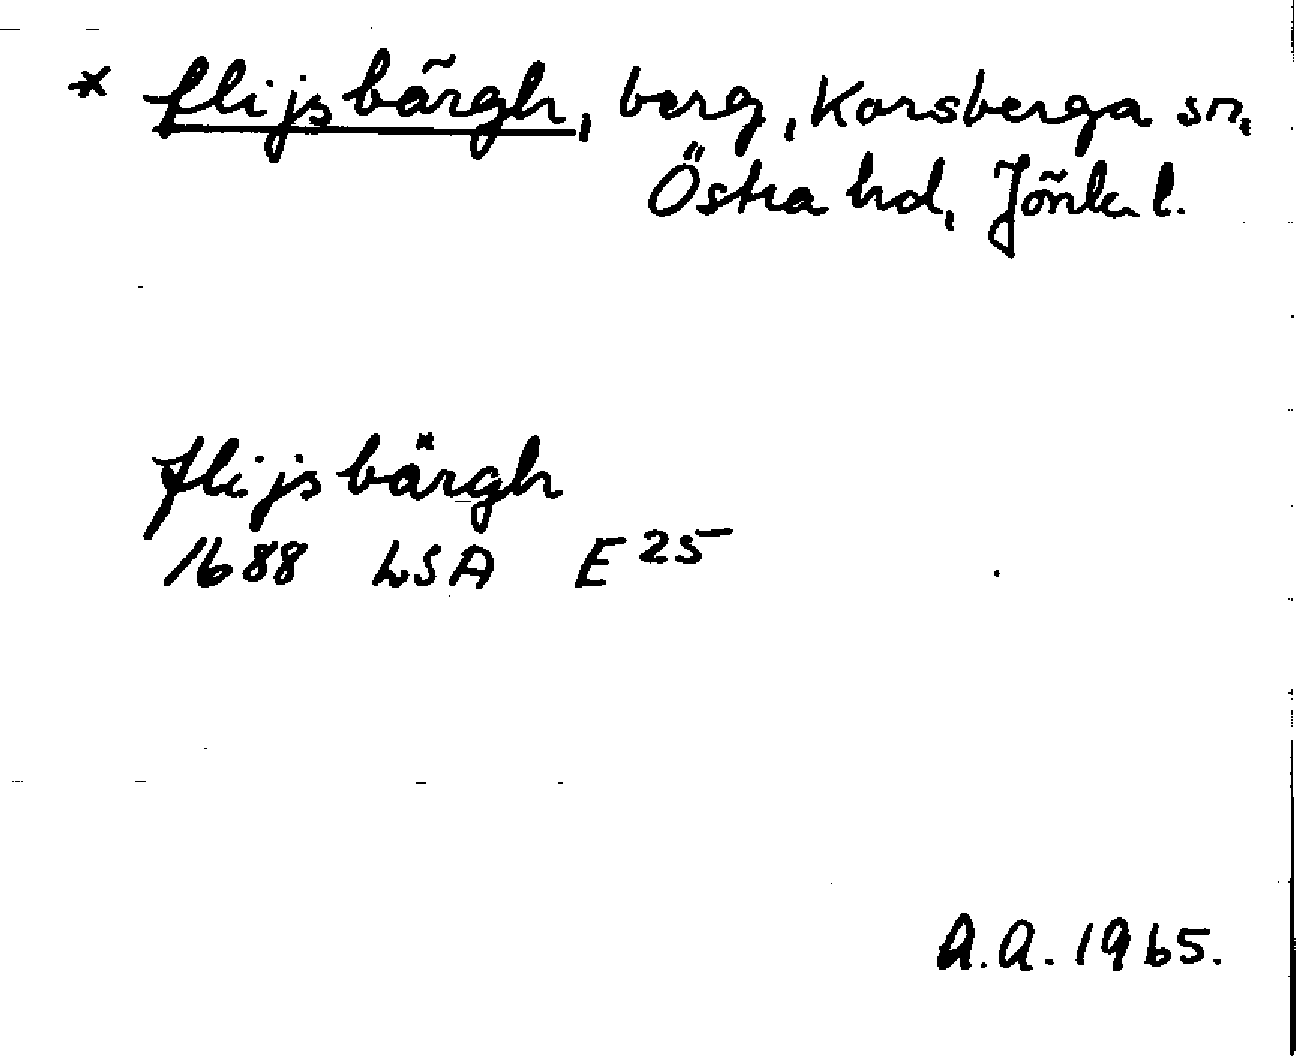 * flijsbärgh, berg, Korsberga sn,
Östra hd, Jönk. l.
flijsbärgh
1688 LSA E 25
A.A. 1965.